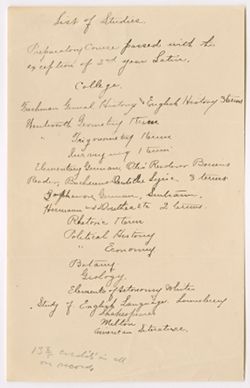 List of Studies.
Preparatory Course passed with the
exception of 3rd year Latin.
College.
Freshman General History & English History 3 terms
Wentworth Geometry 1 term
" Trigonometry 1 term
Surveying 1 term
Elementary German Otis Reader, Boesens
Reader, Buchheims Deutsche Lyric 3 terms
Sophomore German,
Hermann und Dorothea 2 terms.
Rhetoric 1 term
Political History
" Economy
Botany
Geology
Elements of Astronomy White
Study of English Language. Lounsbury
Shakespeare
Milton
American Literature.
credits in all
on records